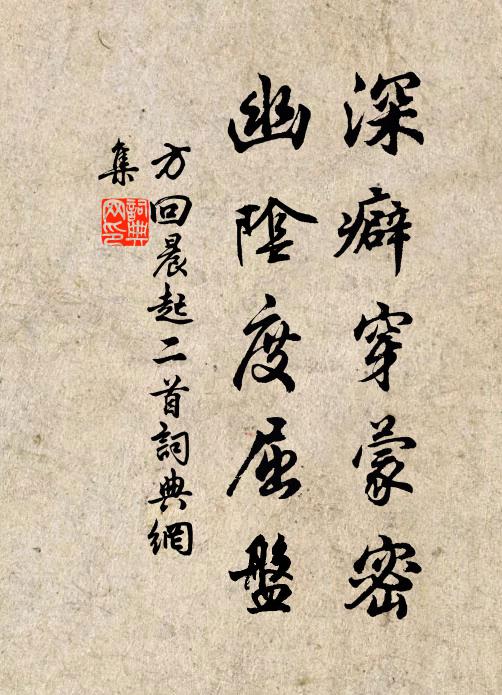 深癖穿蒙密
幽陰度屈盤
方回晨起二首詞典網
集
詞典
网印